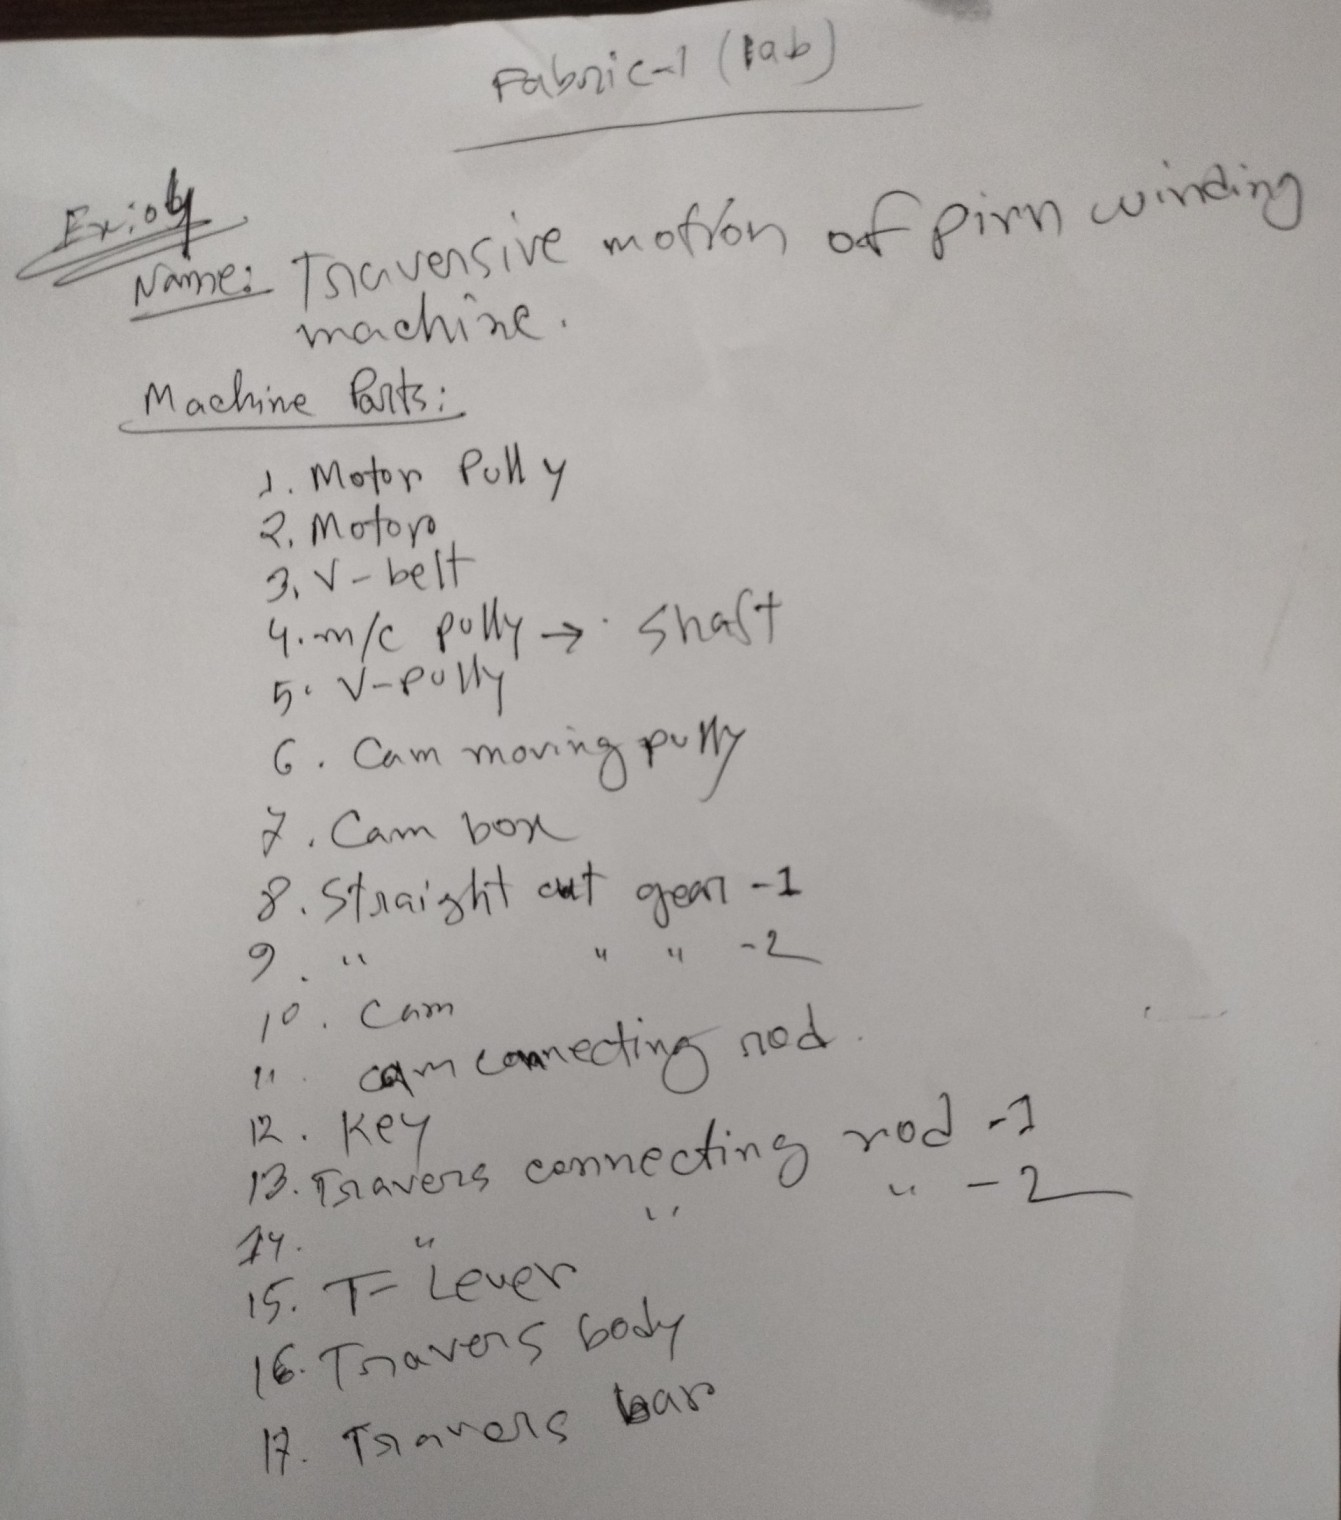 Fabric-1 (lab)
Ex:04
Name: Traversive motion of pirn winding
machine.
Machine Parts:
1. Motor Pully
2. Motor
3. V-belt
4. m/c pully → shaft
5. V-pully
6. Cam moving pully
7. Cam box
8. Straight cut gear -1
9. " " " -2
10. Cam
11. cam connecting rod.
12. Key
13. Travers connecting rod -1
14. " " " -2
15. T- Lever
16. Travers body
17. Travers bar